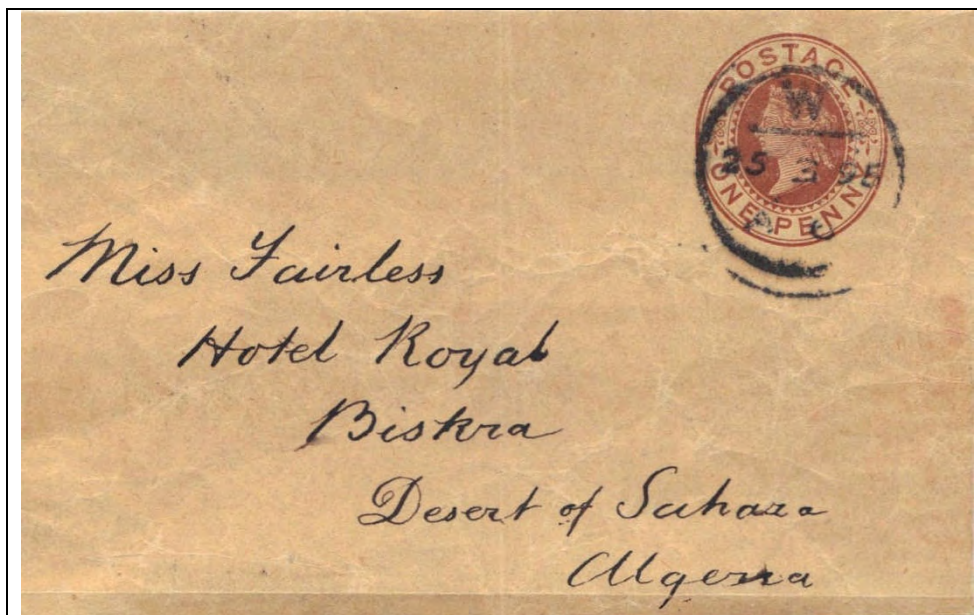 POSTAGE
ONE PENNY
W
25 3
Miss Fairless
Hotel Royal
Biskra
Desert of Sahara
Algeria